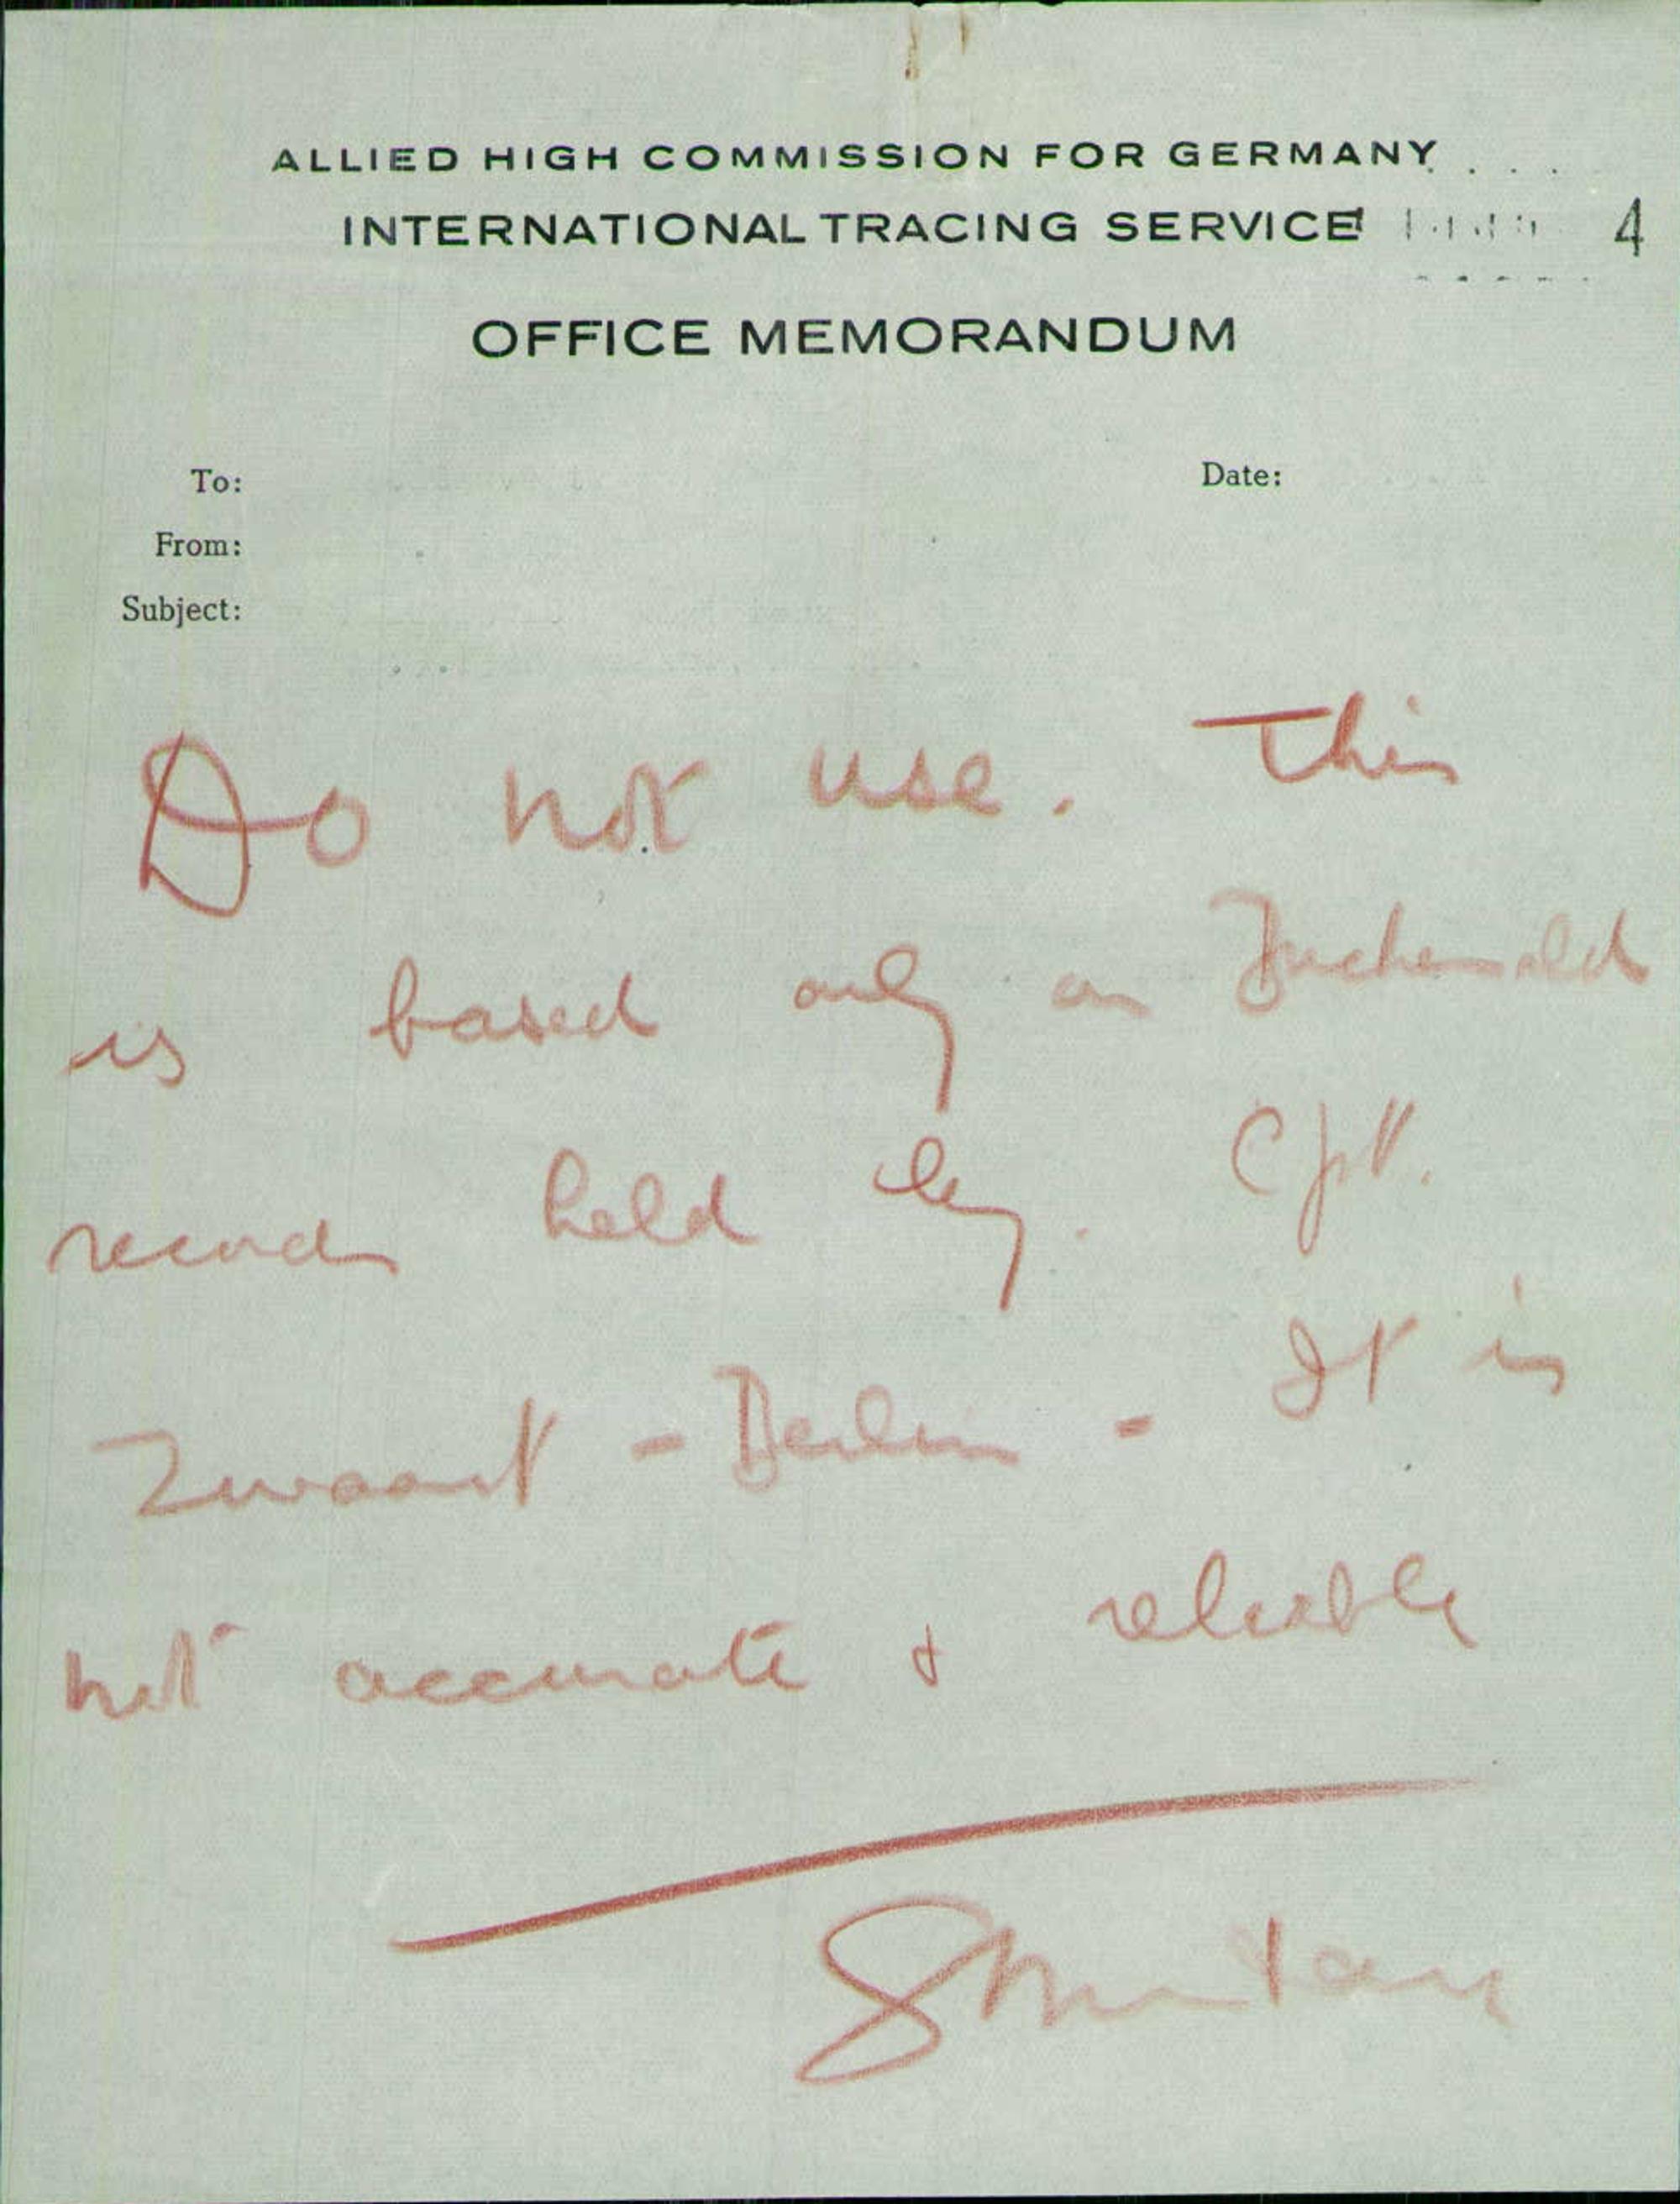 ALLIED HIGH COMMISSION FOR GERMANY
INTERNATIONAL TRACING SERVICE 4
OFFICE MEMORANDUM
To: Date:
From:
Subject:
Do not use. This
is based only on Buchenwald
records held by Cpt.
Zwaart - Berlin - It is
not accurate & reliable